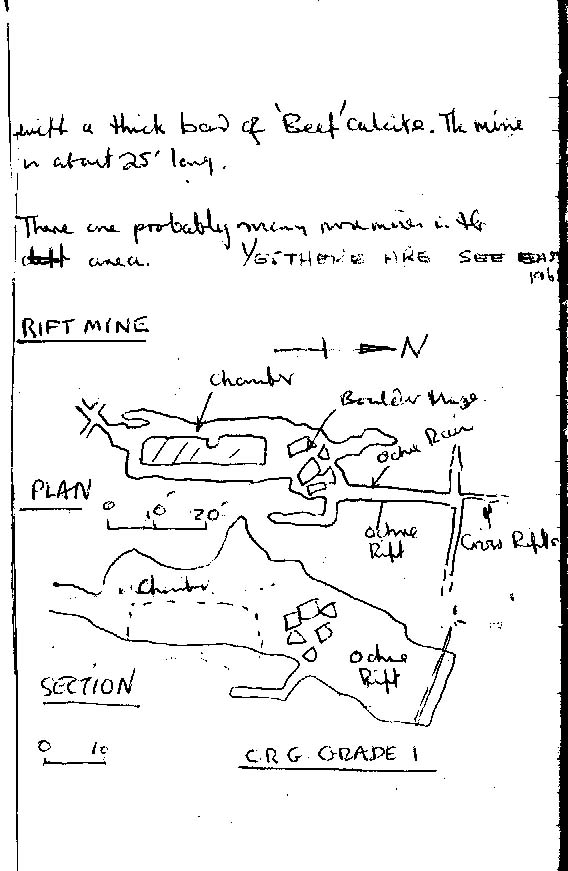 with a thick band of 'Beef' calcite. The mine
is about 25' long.
There are probably many more mines in the
area. YES THERE ARE SEE
RIFT MINE
N
Chamber
Boulder Maze
Ochre
PLAN
0 10' 20'
Ochre
Rift
Cross Rifts
Chamber
Ochre
Rift
SECTION
0 10
C.R.G. GRADE 1